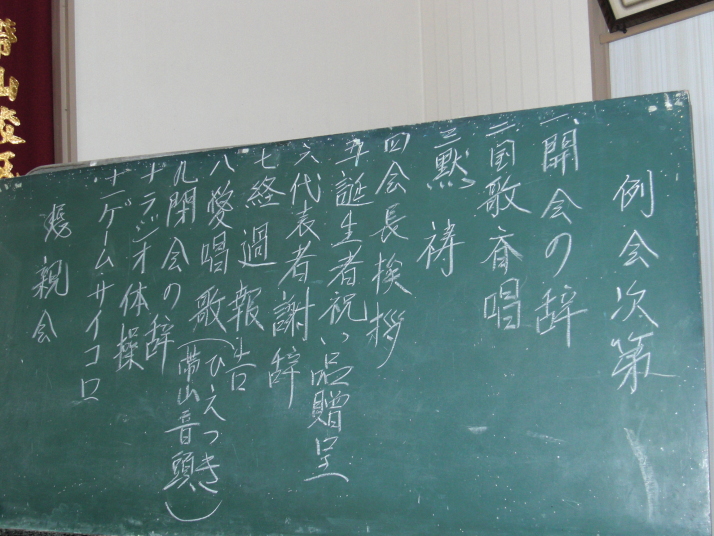 例会次第
一開会の辞
二国歌斉唱
三黙祷
四会長挨拶
五誕生者祝い品贈呈
六代表者謝辞
七経過報告
八愛唱歌(ひえつき
帯山音頭)
九閉会の辞
十ラジオ体操
十一ゲーム・サイコロ
懇親会
帯山校区